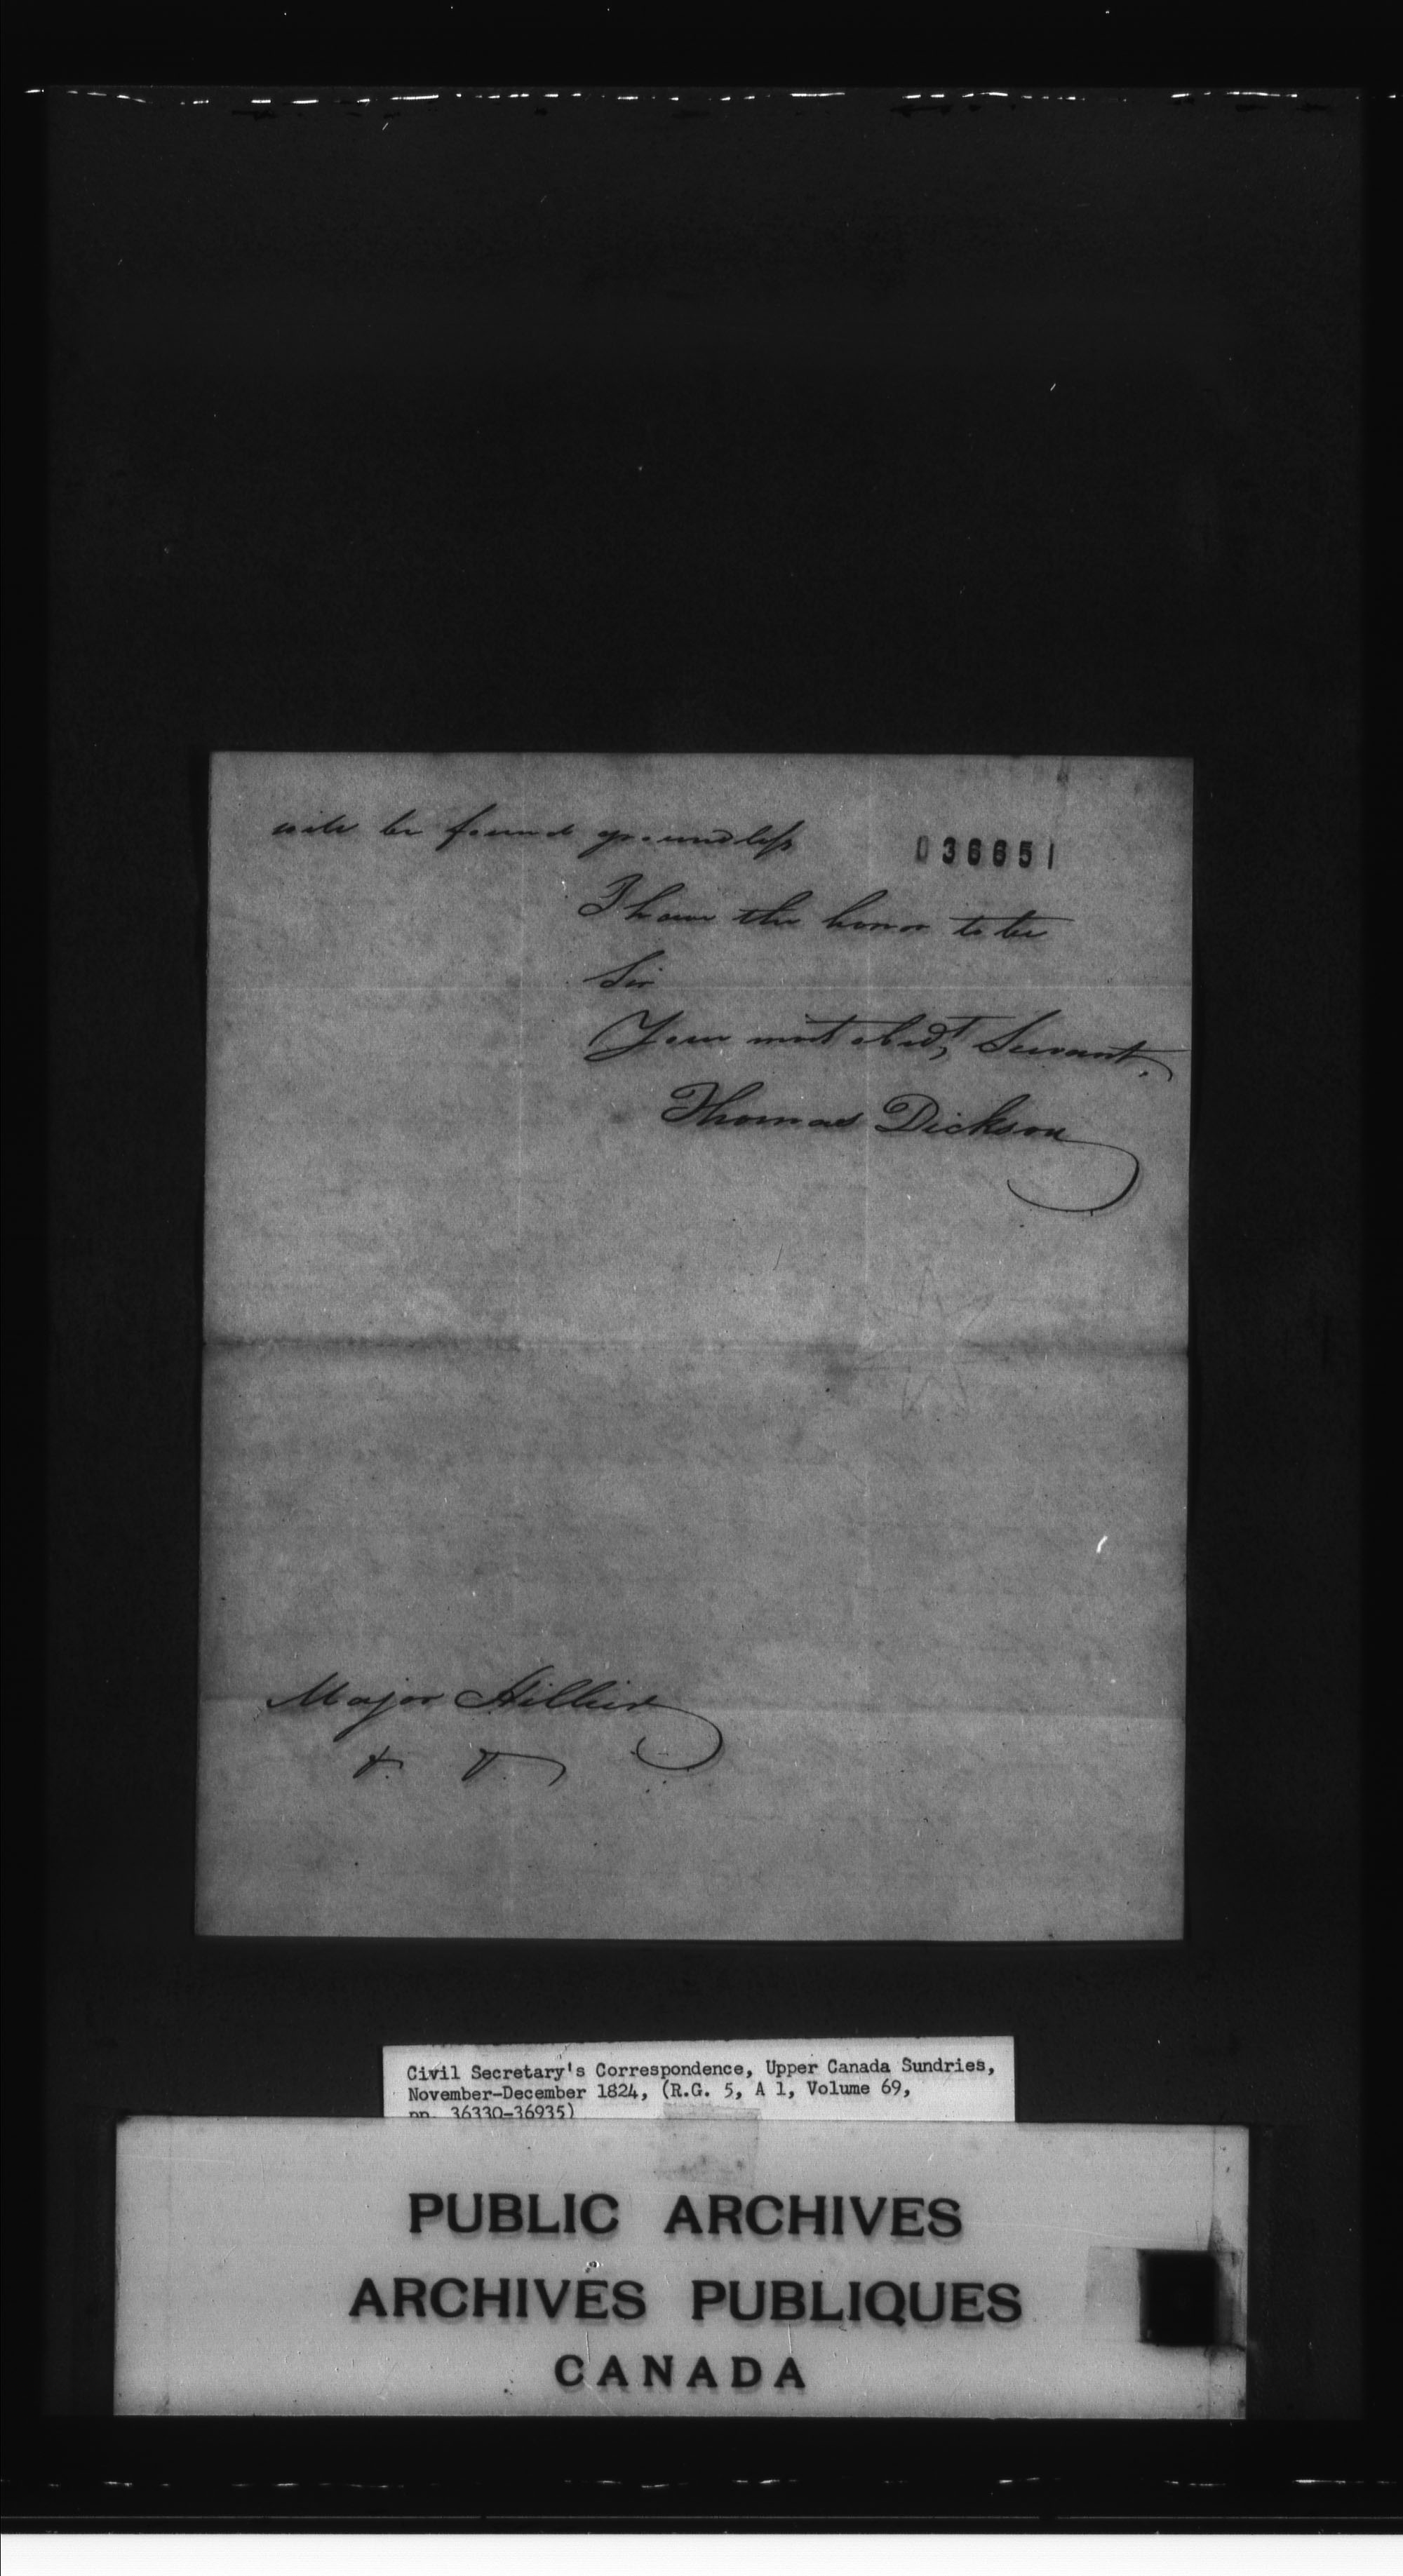 will be found groundless
036651
I have the honor to be
Sir
Your most obedt Servant.
Thomas Dickson
Major Hillier
&. &.
Civil Secretary's Correspondence, Upper Canada Sundries,
November-December 1824, (R.G. 5, A 1, Volume 69,
pp. 36330-36935)
PUBLIC ARCHIVES
ARCHIVES PUBLIQUES
CANADA